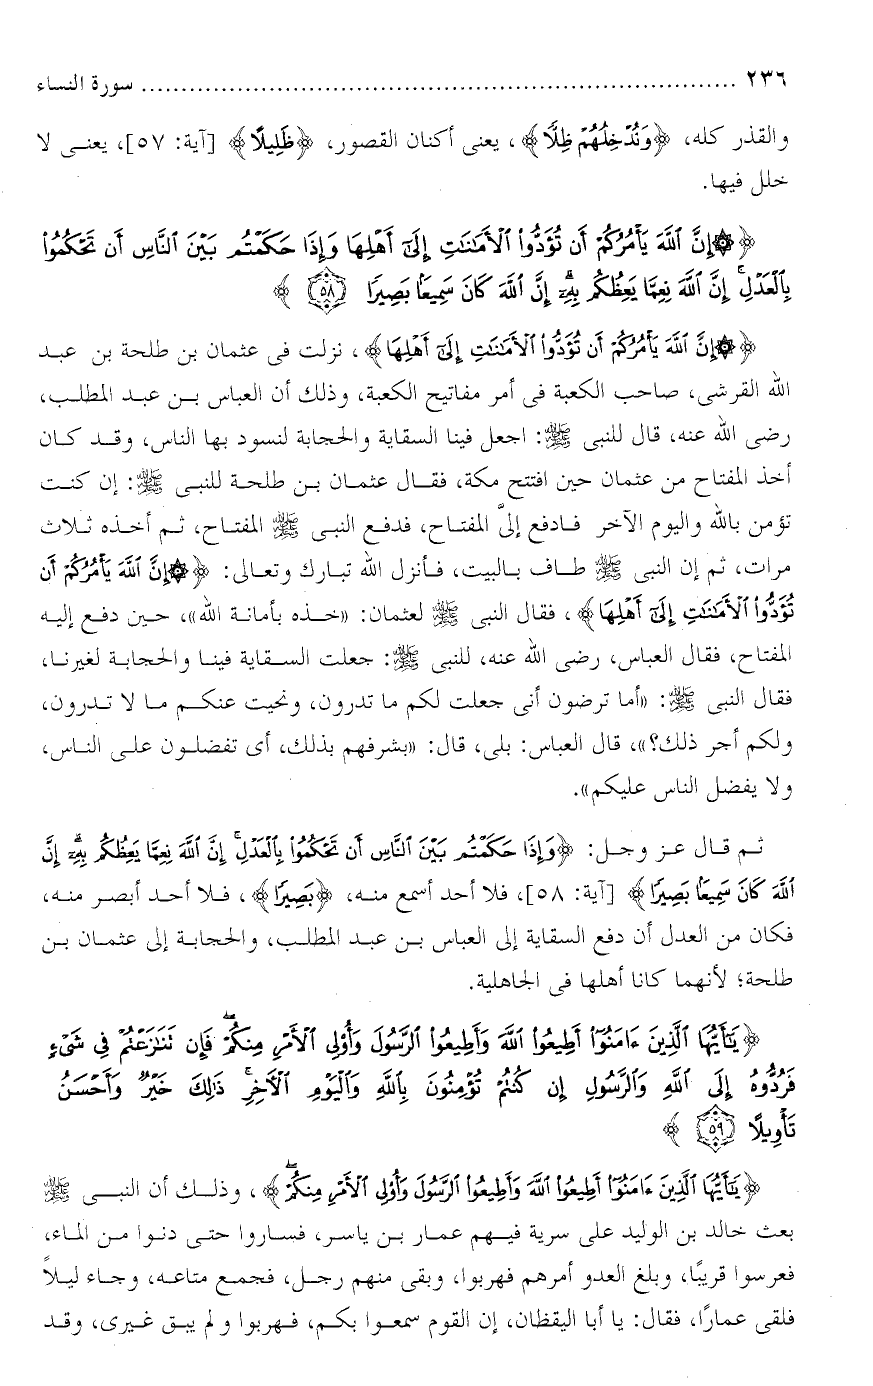 ٢٣٦ ........................................................................... سورة النساء
والقذر كله، ﴿وَنُدْخِلُهُمْ ظِلًّا﴾، يعنى أكنان القصور، ﴿ظَلِيلًا﴾ [آية: ٥٧]، يعنى لا
خلل فيها.
﴿۞إِنَّ ٱللَّهَ يَأْمُرُكُمْ أَن تُؤَدُّوا۟ ٱلْأَمَـٰنَـٰتِ إِلَىٰٓ أَهْلِهَا وَإِذَا حَكَمْتُم بَيْنَ ٱلنَّاسِ أَن تَحْكُمُوا۟
بِٱلْعَدْلِ ۚ إِنَّ ٱللَّهَ نِعِمَّا يَعِظُكُم بِهِۦٓ ۗ إِنَّ ٱللَّهَ كَانَ سَمِيعًۢا بَصِيرًا ٥٨﴾
﴿۞إِنَّ ٱللَّهَ يَأْمُرُكُمْ أَن تُؤَدُّوا۟ ٱلْأَمَـٰنَـٰتِ إِلَىٰٓ أَهْلِهَا﴾، نزلت فى عثمان بن طلحة بن عبد
الله القرشى، صاحب الكعبة فى أمر مفاتيح الكعبة، وذلك أن العباس بن عبد المطلب،
رضى الله عنه، قال للنبى ﷺ: اجعل فينا السقاية والحجابة لنسود بها الناس، وقد كان
أخذ المفتاح من عثمان حين افتتح مكة، فقال عثمان بن طلحة للنبى ﷺ: إن كنت
تؤمن بالله واليوم الآخر فادفع إلىَّ المفتاح، فدفع النبى ﷺ المفتاح، ثم أخذه ثلاث
مرات، ثم إن النبى ﷺ طاف بالبيت، فأنزل الله تبارك وتعالى: ﴿۞إِنَّ ٱللَّهَ يَأْمُرُكُمْ أَن
تُؤَدُّوا۟ ٱلْأَمَـٰنَـٰتِ إِلَىٰٓ أَهْلِهَا﴾، فقال النبى ﷺ لعثمان: «خذه بأمانة الله»، حين دفع إليه
المفتاح، فقال العباس، رضى الله عنه، للنبى ﷺ: جعلت السقاية فينا والحجابة لغيرنا،
فقال النبى ﷺ: «أما ترضون أنى جعلت لكم ما تدرون، ونحيت عنكم ما لا تدرون،
ولكم أجر ذلك؟»، قال العباس: بلى، قال: «بشرفهم بذلك، أى تفضلون على الناس،
ولا يفضل الناس عليكم».
ثم قال عز وجل: ﴿وَإِذَا حَكَمْتُم بَيْنَ ٱلنَّاسِ أَن تَحْكُمُوا۟ بِٱلْعَدْلِ ۚ إِنَّ ٱللَّهَ نِعِمَّا يَعِظُكُم بِهِۦٓ ۗ إِنَّ
ٱللَّهَ كَانَ سَمِيعًۢا بَصِيرًا﴾ [آية: ٥٨]، فلا أحد أسمع منه، ﴿بَصِيرًا﴾، فلا أحد أبصر منه،
فكان من العدل أن دفع السقاية إلى العباس بن عبد المطلب، والحجابة إلى عثمان بن
طلحة؛ لأنهما كانا أهلها فى الجاهلية.
﴿يَـٰٓأَيُّهَا ٱلَّذِينَ ءَامَنُوٓا۟ أَطِيعُوا۟ ٱللَّهَ وَأَطِيعُوا۟ ٱلرَّسُولَ وَأُو۟لِى ٱلْأَمْرِ مِنكُمْ ۖ فَإِن تَنَـٰزَعْتُمْ فِى شَىْءٍ
فَرُدُّوهُ إِلَى ٱللَّهِ وَٱلرَّسُولِ إِن كُنتُمْ تُؤْمِنُونَ بِٱللَّهِ وَٱلْيَوْمِ ٱلْـَٔاخِرِ ۚ ذَٰلِكَ خَيْرٌ وَأَحْسَنُ
تَأْوِيلًا ٥٩﴾
﴿يَـٰٓأَيُّهَا ٱلَّذِينَ ءَامَنُوٓا۟ أَطِيعُوا۟ ٱللَّهَ وَأَطِيعُوا۟ ٱلرَّسُولَ وَأُو۟لِى ٱلْأَمْرِ مِنكُمْ ۖ﴾، وذلك أن النبى ﷺ
بعث خالد بن الوليد على سرية فيهم عمار بن ياسر، فساروا حتى دنوا من الماء،
فعرسوا قريبًا، وبلغ العدو أمرهم فهربوا، وبقى منهم رجل، فجمع متاعه، وجاء ليلاً
فلقى عمارًا، فقال: يا أبا اليقظان، إن القوم سمعوا بكم، فهربوا و لم يبق غيرى، وقد